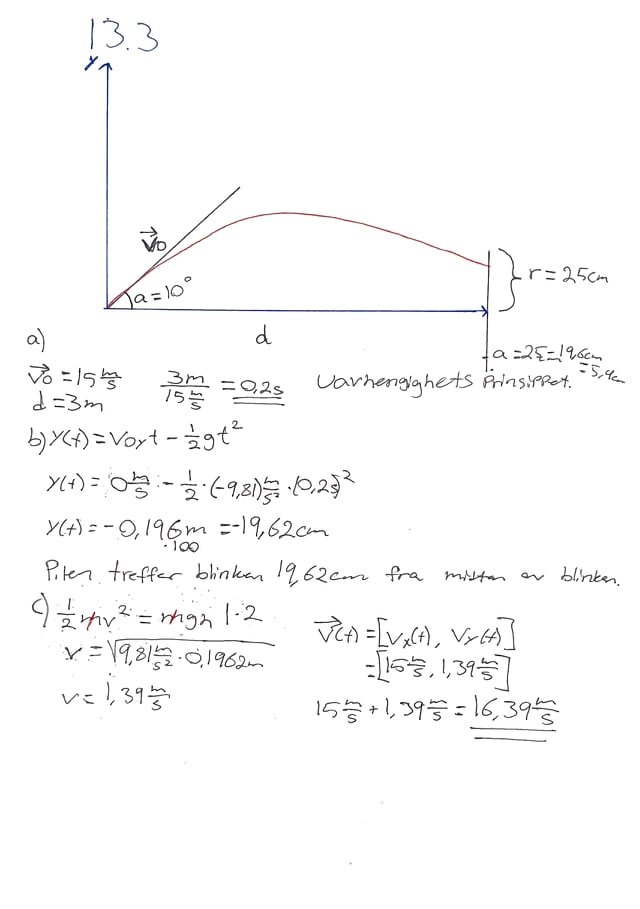 13.3
y
V⃗o
a=10°
r=25cm
d
a=25-19,6cm
=5,4cm
a)
V⃗o=15 m/s
d=3m
3m / 15 m/s = 0,2s
Uavhengighets Prinsippet.
b) Y(t)=Voyt-½gt²
Y(t)=0 m/s - ½·(-9,81) m/s²·(0,2s)²
Y(t)=-0,196m=-19,62cm
·100
Pilen treffer blinken 19,62cm fra midten av blinken.
c) ½mv²=mgh |·2
v=√(9,81 m/s²·0,1962m)
v=1,39 m/s
V⃗(t)=[Vx(t), Vy(t)]
=[15 m/s, 1,39 m/s]
15 m/s+1,39 m/s=16,39 m/s